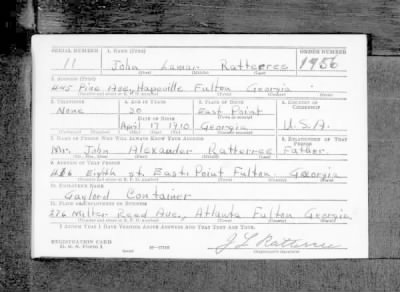 SERIAL NUMBER 1. NAME (Print) ORDER NUMBER
11 John Lamar Ratterree 1956
(First) (Middle) (Last)
2. ADDRESS (Print)
445 Pine Ave, Hapeville Fulton Georgia
3. TELEPHONE 4. AGE IN YEARS 5. PLACE OF BIRTH 6. COUNTRY OF CITIZENSHIP
None 30 East Point
DATE OF BIRTH
April 17 1910 Georgia U.S.A.
7. NAME OF PERSON WHO WILL ALWAYS KNOW YOUR ADDRESS 8. RELATIONSHIP OF THAT PERSON
Mr. John Alexander Ratterree Father
9. ADDRESS OF THAT PERSON
Eighth st. East Point Fulton Georgia
10. EMPLOYER'S NAME
Gaylord Container
11. PLACE OF EMPLOYMENT OR BUSINESS
Reed Ave., Atlanta Fulton Georgia
I AFFIRM THAT I HAVE VERIFIED ABOVE ANSWERS AND THAT THEY ARE TRUE.
REGISTRATION CARD
D. S. S. FORM 1 J L Ratterree